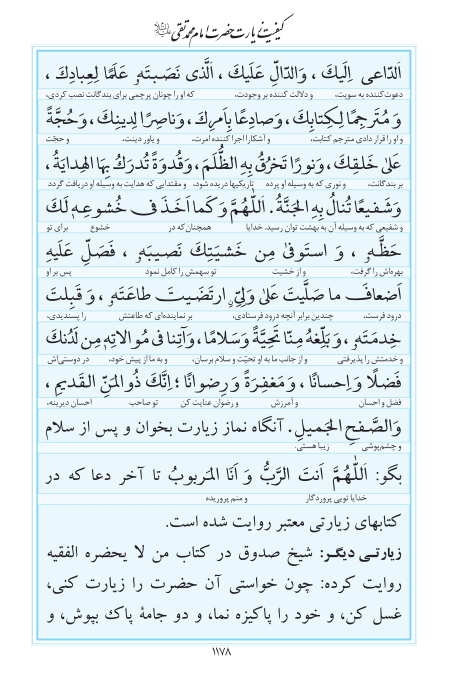 کیفیت زیارت حضرت امام محمد تقی علیه السلام
اَلدّاعی اِلَیكَ ، وَالدّالِّ عَلَیكَ ، اَلَّذی نَصَبتَهٗ عَلَمًا لِعِبادِكَ ،
دعوت‌کننده به سویت، و دلالت کننده بر وجودت، که او را چونان پرچمی برای بندگانت نصب کردی،
وَ مُتَرجِمًا لِكِتابِكَ، وَصادِعًا بِاَمرِكَ، وَناصِرًا لِدینِكَ، وَحُجَّةً
و او را قرار دادی مترجم کتابت، و آشکارا اجرا کننده امرت، و یاور دینت، و حجّت
عَلیٰ خَلقِكَ، وَنورًا تَخرُقُ بِهِ الظُّلَمَ، وَقُدوَةً تُدرَكُ بِهَا الهِدایَةُ،
بر بندگانت، و نوری که به وسیله او پرده تاریکیها دریده شود، و مقتدایی که هدایت به وسیله او دریافت گردد
وَشَفیعًا تُنالُ بِهِ الجَنَّةُ. اَللّٰهُمَّ وَكَما اَخَذَ فی خُشوعِهٖ لَكَ
و شفیعی که به وسیله آن به بهشت توان رسید. خدایا همچنان‌که در خشوع برای تو
حَظَّهٗ ، وَ استَوفیٰ مِن خَشیَتِكَ نَصیبَهٗ ، فَصَلِّ عَلَیهِ
بهره‌اش را گرفت، و از خشیت تو سهمش را کامل نمود پس بر او
اَضعافَ ما صَلَّیتَ عَلیٰ وَلِیٍّ ارتَضَیتَ طاعَتَهٗ ، وَ قَبِلتَ
درود فرست، چندین برابر آنچه درود فرستادی، بر نماینده‌ای که طاعتش را پسندیدی،
خِدمَتَهٗ ، وَبَلِّغهُ مِنّا تَحِیَّةً وَسَلامًا، وَآتِنا فی مُوالاتِهٖ مِن لَدُنكَ
و خدمتش را پذیرفتی و از جانب ما به او تحیّت و سلام برسان، و به ما از پیش خود، در دوستی‌اش
فَضلًا وَ اِحسانًا ، وَ مَغفِرَةً وَ رِضوانًا ؛ اِنَّكَ ذُو المَنِّ القَدیمِ ،
فضل و احسان و آمرزش و رضوان عنایت کن تو صاحب احسان دیرینه،
وَالصَّفحِ الجَمیلِ. آنگاه نماز زیارت بخوان و پس از سلام
و چشم‌پوشی زیبا هستی.
بگو: اَللّٰهُمَّ اَنتَ الرَّبُّ وَ اَنَا المَربوبُ تا آخر دعا که در
خدایا تویی پروردگار و منم پروریده
کتابهای زیارتی معتبر روایت شده است.
زیارتـی دیگـر: شیخ صدوق در کتاب من لا یحضره الفقیه
روایت کرده: چون خواستی آن حضرت را زیارت کنی،
غسل کن، و خود را پاکیزه نما، و دو جامهٔ پاک بپوش، و
۱۱۷۸